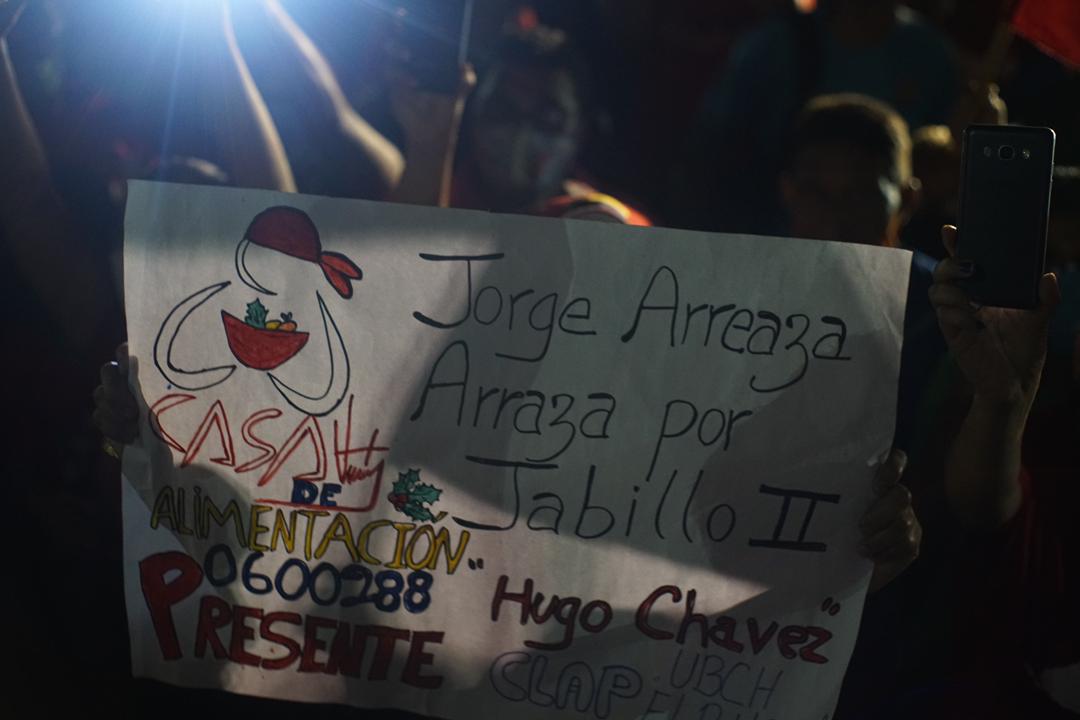 Jorge Arreaza
Arraza por
Jabillo II
CASA
DE
ALIMENTACIÓN"
0600288
PRESENTE
Hugo Chavez"
CLAP UBCH